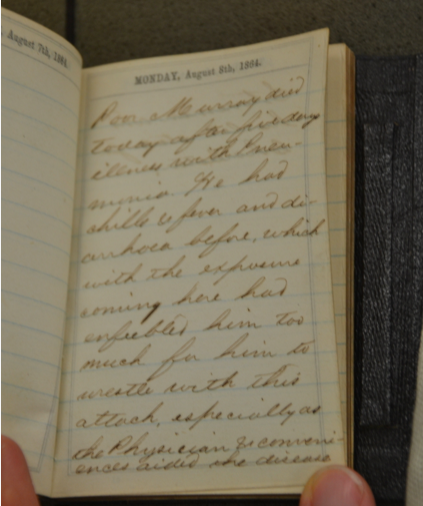 , August 7th, 1864.
MONDAY, August 8th, 1864.
Poor Murray died
today after five days
illness with Pneu-
minia. He had
chills & fever and di-
arrhoea before, which
with the exposure
coming here had
enfeebled him too
much for him to
wrestle with this
attack, especially as
the Physician & conveni-
ences aided the disease